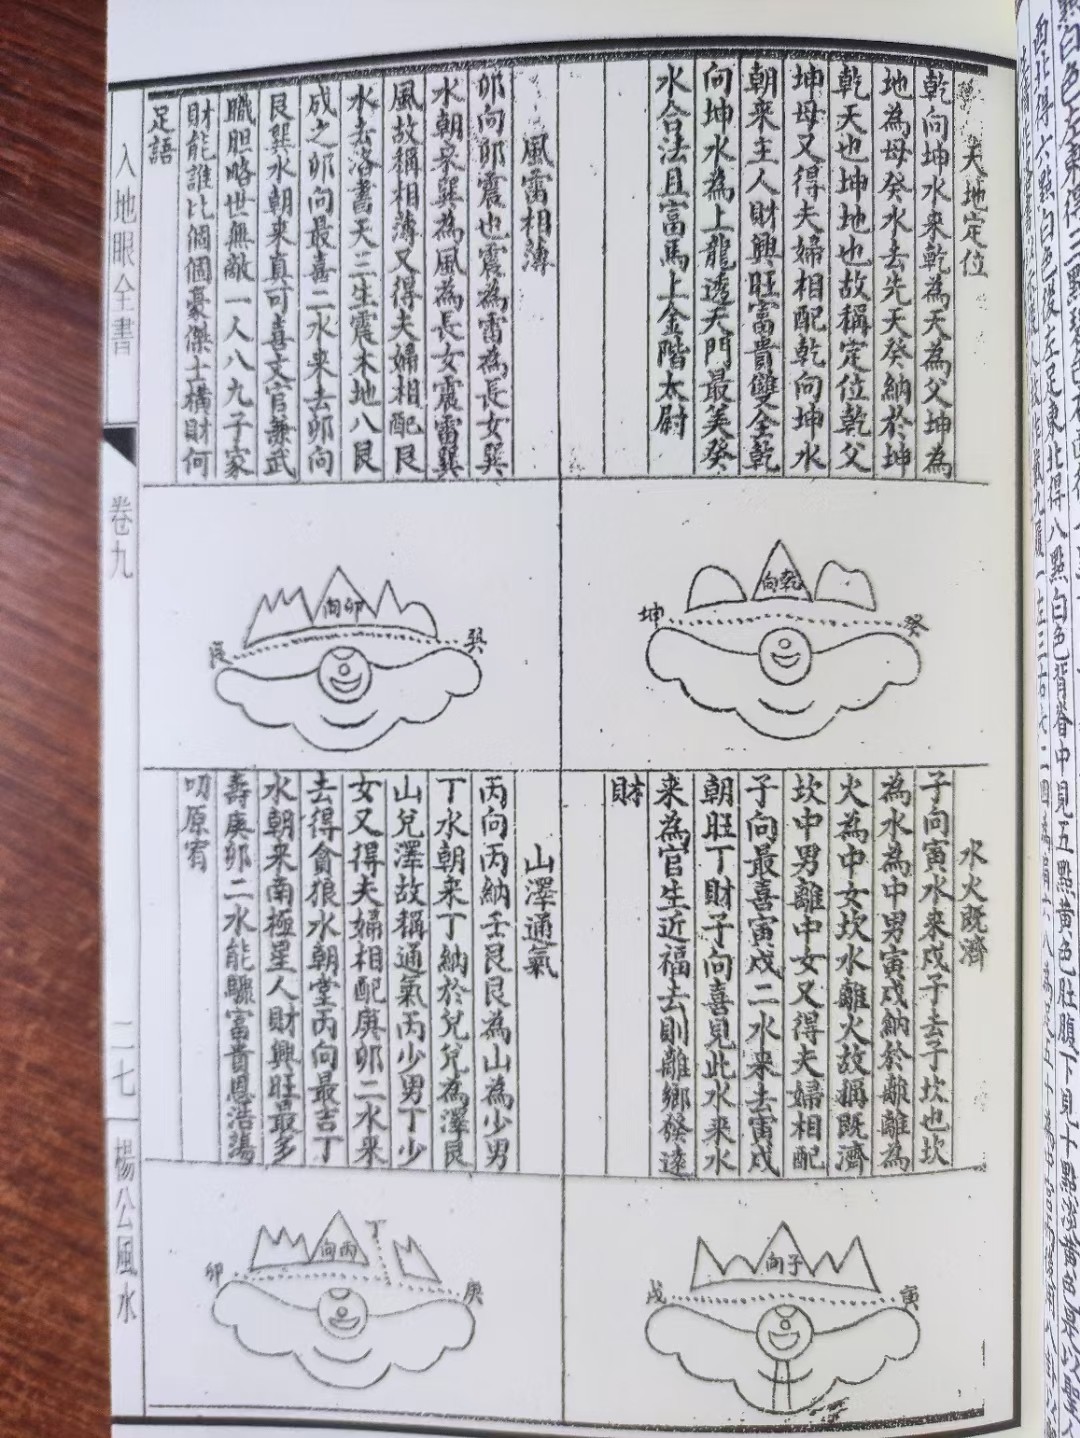 天地定位
乾向坤水来乾為天為父坤為
地為母癸水去先天癸納於坤
乾天也坤地也故稱定位乾父
坤母又得夫婦相配乾向坤水
朝来主人財興旺富貴雙全乾
向坤水為上龍透天門最美癸
水合法且富馬上金階太尉
風雷相薄
卯向卯震也震為雷為長女巽
水朝来巽為風為長女震雷巽
風故稱相薄又得夫婦相配艮
水去洛書天三生震木地八艮
成之卯向最喜二水来去卯向
艮巽水朝来真可喜文官兼武
職胆略世無敵一人八九子家
財能誰比個個豪傑士橫財何
足語
乾向
坤
癸
卯向
艮
巽
水火既濟
子向寅水来戌子去子坎也坎
為水為中男寅戌納於離離為
火為中女坎水離火故稱既濟
坎中男離中女又得夫婦相配
子向最喜寅戌二水来去寅戌
朝旺丁財子向喜見此水来水
来為官生近福去則離鄉發遠
財
山澤通氣
丙向丙納壬艮艮為山為少男
丁水朝来丁納於兌兌為澤艮
山兌澤故稱通氣丙少男丁少
女又得夫婦相配庚卯二水来
去得貪狼水朝堂丙向最吉丁
水朝来南極星人財興旺最多
壽庚卯二水能驟富貴恩浩蕩
叨原宥
子向
戌
寅
丙向
丁
卯
庚
入地眼全書
卷九
二七
楊公風水